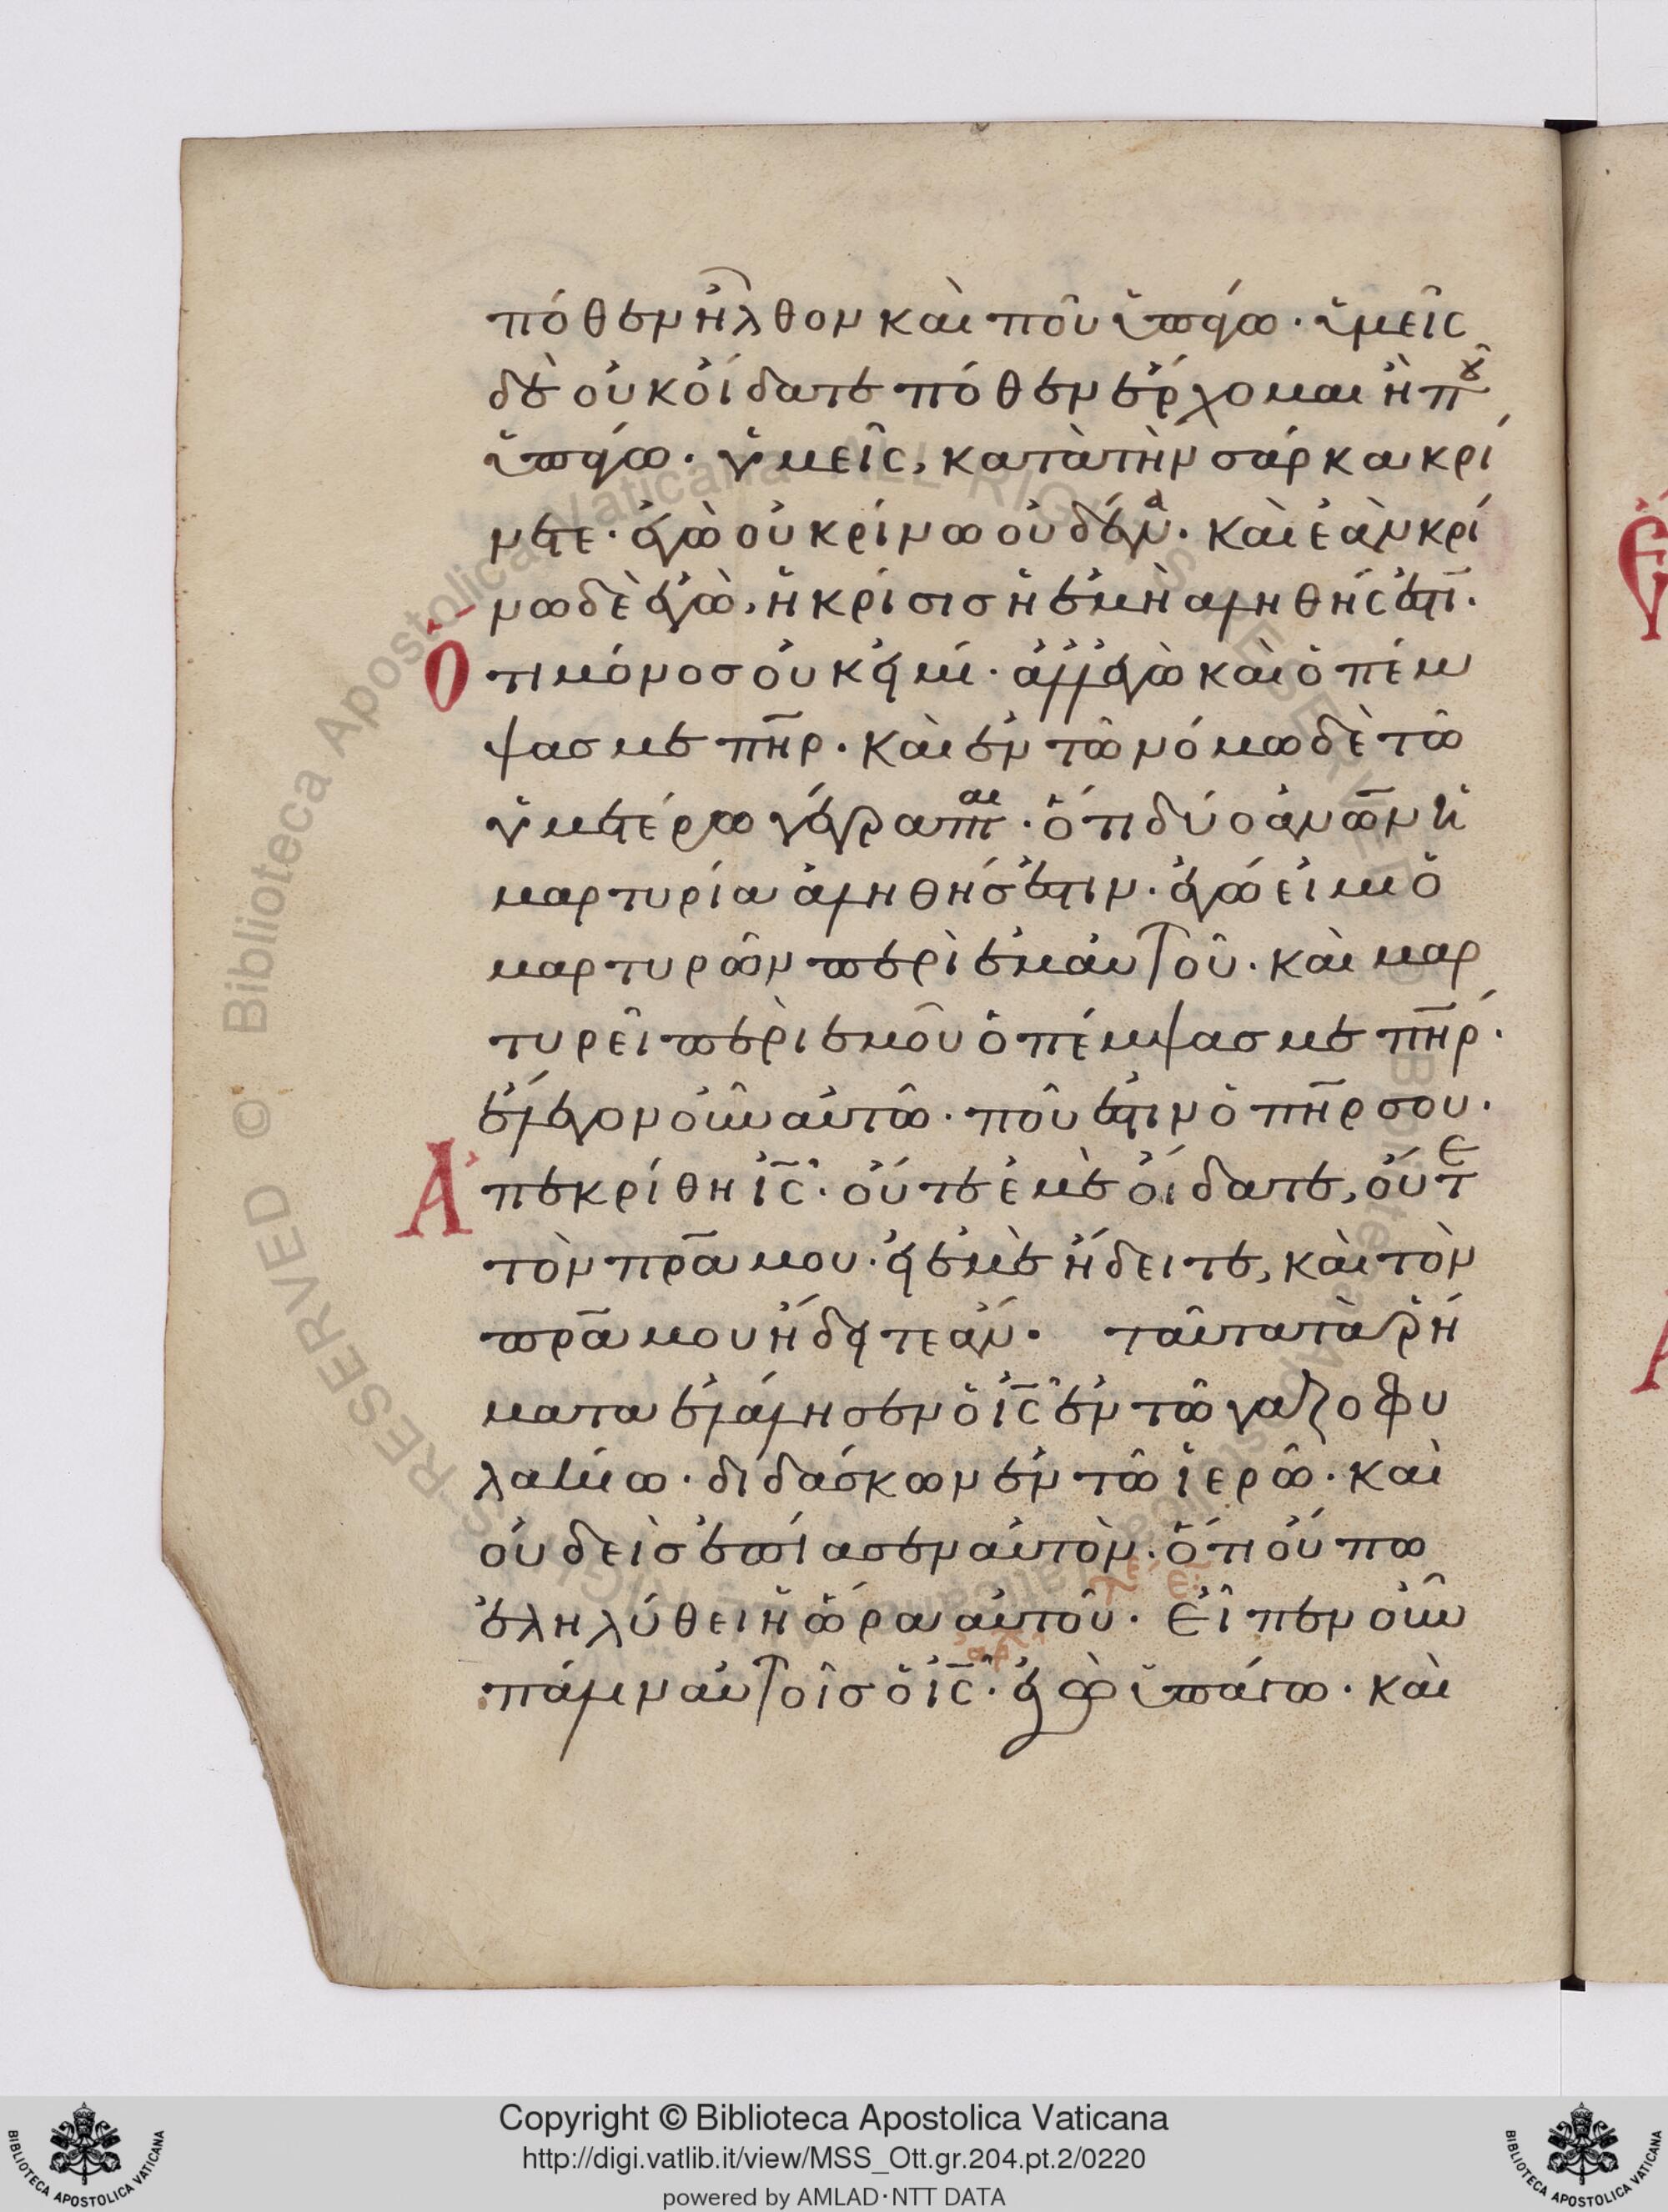 πόθεν ἦλθον καὶ ποῦ ὑπάγω· ὑμεῖς
δὲ οὐκ οἴδατε πόθεν ἔρχομαι ἢ ποῦ
ὑπάγω· ὑμεῖς, κατὰ τὴν σάρκα κρί
νετε· ἐγὼ οὐ κρίνω οὐδένα· καὶ ἐὰν κρί
νω δὲ ἐγὼ, ἡ κρίσις ἡ ἐμὴ ἀληθής ἐστι·
ὅτι μόνος οὐκ εἰμί· ἀλλ' ἐγὼ καὶ ὁ πέμ
ψας με πηρ· καὶ ἐν τῶ νόμω δὲ τῶ
ὑμετέρω γέγραπται· ὅτι δύο ἀνων ἡ
μαρτυρία ἀληθής ἐστιν· ἐγώ εἰμι ὁ
μαρτυρῶν περὶ ἐμαυτοῦ· καὶ μαρ
τυρεῖ περὶ ἐμοῦ ὁ πέμψας με πηρ·
ἔλεγον οὖν αὐτῶ· ποῦ ἐστιν ὁ πηρ σου·
Ἀπεκρίθη ις· οὔτε ἐμὲ οἴδατε, οὔτε
τὸν πρα μου· εἰ ἐμὲ ἤδειτε, καὶ τὸν
πρα μου ἤδειτε ἄν· ταῦτα τὰ ῥή
ματα ἐλάλησεν ὁ ις ἐν τῶ γαζοφυ
λακίω· διδάσκων ἐν τῶ ἱερῶ· καὶ
οὐδεὶς ἐπίασεν αὐτὸν· ὅτι οὔπω
ἐληλύθει ἡ ὥρα αὐτοῦ· Εἶπεν οὖν
πάλιν αὐτοῖς ὁ ις· ἐγὼ ὑπάγω· καὶ
Copyright © Biblioteca Apostolica Vaticana
http://digi.vatlib.it/view/MSS_Ott.gr.204.pt.2/0220
powered by AMLAD·NTT DATA
BIBLIOTECA APOSTOLICA VATICANA
BIBLIOTECA APOSTOLICA VATICANA